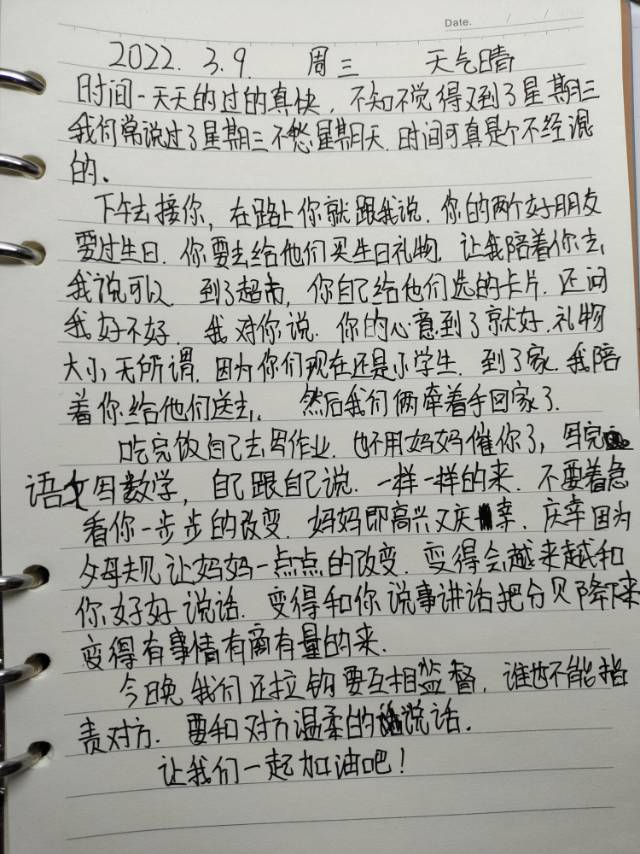 Date. / /
2022. 3.9. 周三 天气晴
时间一天天的过的真快,不知不觉得又到了星期三
我们常说过了星期三不愁星期天.时间可真是个不经混
的.
下午去接你,在路上你就跟我说.你的两个好朋友
要过生日.你要去给他们买生日礼物.让我陪着你去
我说可以 到了超市,你自己给他们选的卡片.还问
我好不好.我对你说.你的心意到了就好.礼物
大小无所谓.因为你们现在还是小学生.到了家.我陪
着你给他们送去. 然后我们俩牵着手回家了.
吃完饭自己去写作业.也不用妈妈催你了,写完
语文写数学,自己跟自己说.一样一样的来.不要着急
看你一步步的改变.妈妈即高兴又庆幸.庆幸因为
父母规让妈妈一点点的改变.变得会越来越和
你好好说话.变得和你说事讲话把分贝降下来
变得有事情有商有量的来.
今日晚我们还拉钩要互相监督,谁也不能指
责对方.要和对方温柔的说话.
让我们一起加油吧!